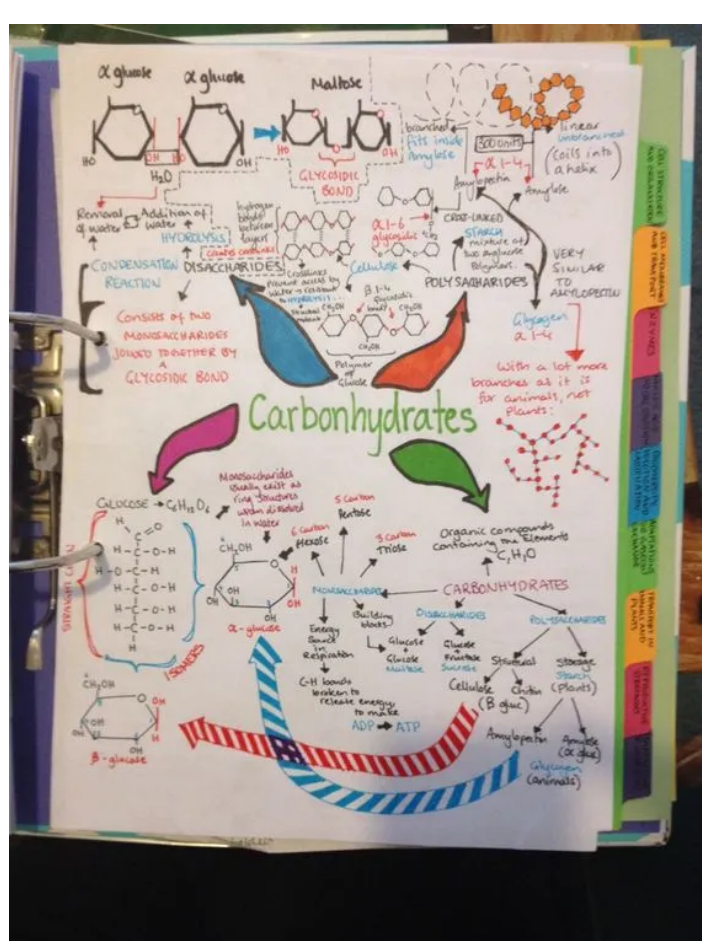 α glucose
α glucose
Maltose
HO
OH
HO
OH
HO
OH
H₂O
GLYCOSIDIC
BOND
Removal
of water
Addition of
water
HYDROLYSIS
CONDENSATION
REACTION
DISACCHARIDES
Consists of two
MONOSACCHARIDES
JOINED TOGETHER BY
A
GLYCOSIDIC BOND
hydrogen
bonds
between
layers
Crosslinks
Prevent access by
HYDROLYSIS
Cellulose
β 1-4
Glycosidic
bond
CH₂OH
CH₂OH
CH₂OH
Polymer
of
Glucose
branched
Fits inside
Amylose
300 units
α 1-4
Amylopectin
Amylose
linear
unbranched
(coils into
a helix
α1-6
glycosidic
CROSS-LINKED
STARCH
mixture of
two α glucose
Polymers
POLYSACHARIDES
VERY
SIMILAR
TO
AMYLOPECTIN
Glycogen
α 1-4
With a lot more
branches as it is
for animals, not
plants:
Carbonhydrates
GLUCOSE → C₆H₁₂O₆
Monosaccharides
usually exist as
ring structures
when dissolved
in water
STRAIGHT CHAIN
ISOMERS
CH₂OH
α-glucose
CH₂OH
β-glucose
6 carbon
Hexose
5 carbon
Pentose
3 carbon
Triose
MONOSACCHARIDES
Energy
Source
in
Respiration
C-H bonds
broken to
release energy
to make
ADP → ATP
Building
blocks
Organic compounds
containing the Elements
C, H, O
CARBONHYDRATES
DISACCHARIDES
Glucose
+
Glucose
Maltose
Glucose
+
Fructose
Sucrose
POLYSACCHARIDES
Structural
Cellulose
(β gluc)
Chitin
Storage
Starch
(plants)
Amylopectin
Amylose
(α gluc)
Glycogen
(animals)
CELL STRUCTURE
AND ORGANISATION
CELL MEMBRANES
AND TRANSPORT
ENZYMES